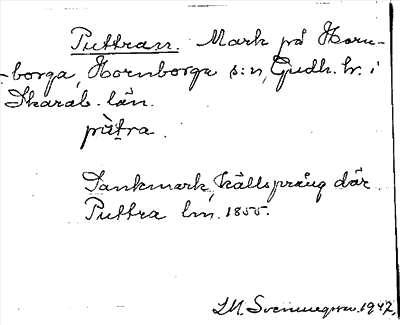 Puttran. Mark på Horn-
borga, Hornborga s:n, Gudh. hr. i
Skarab. län.
pùtra
Sankmark, källsprång där.
Puttra lm. 1855.
1947.